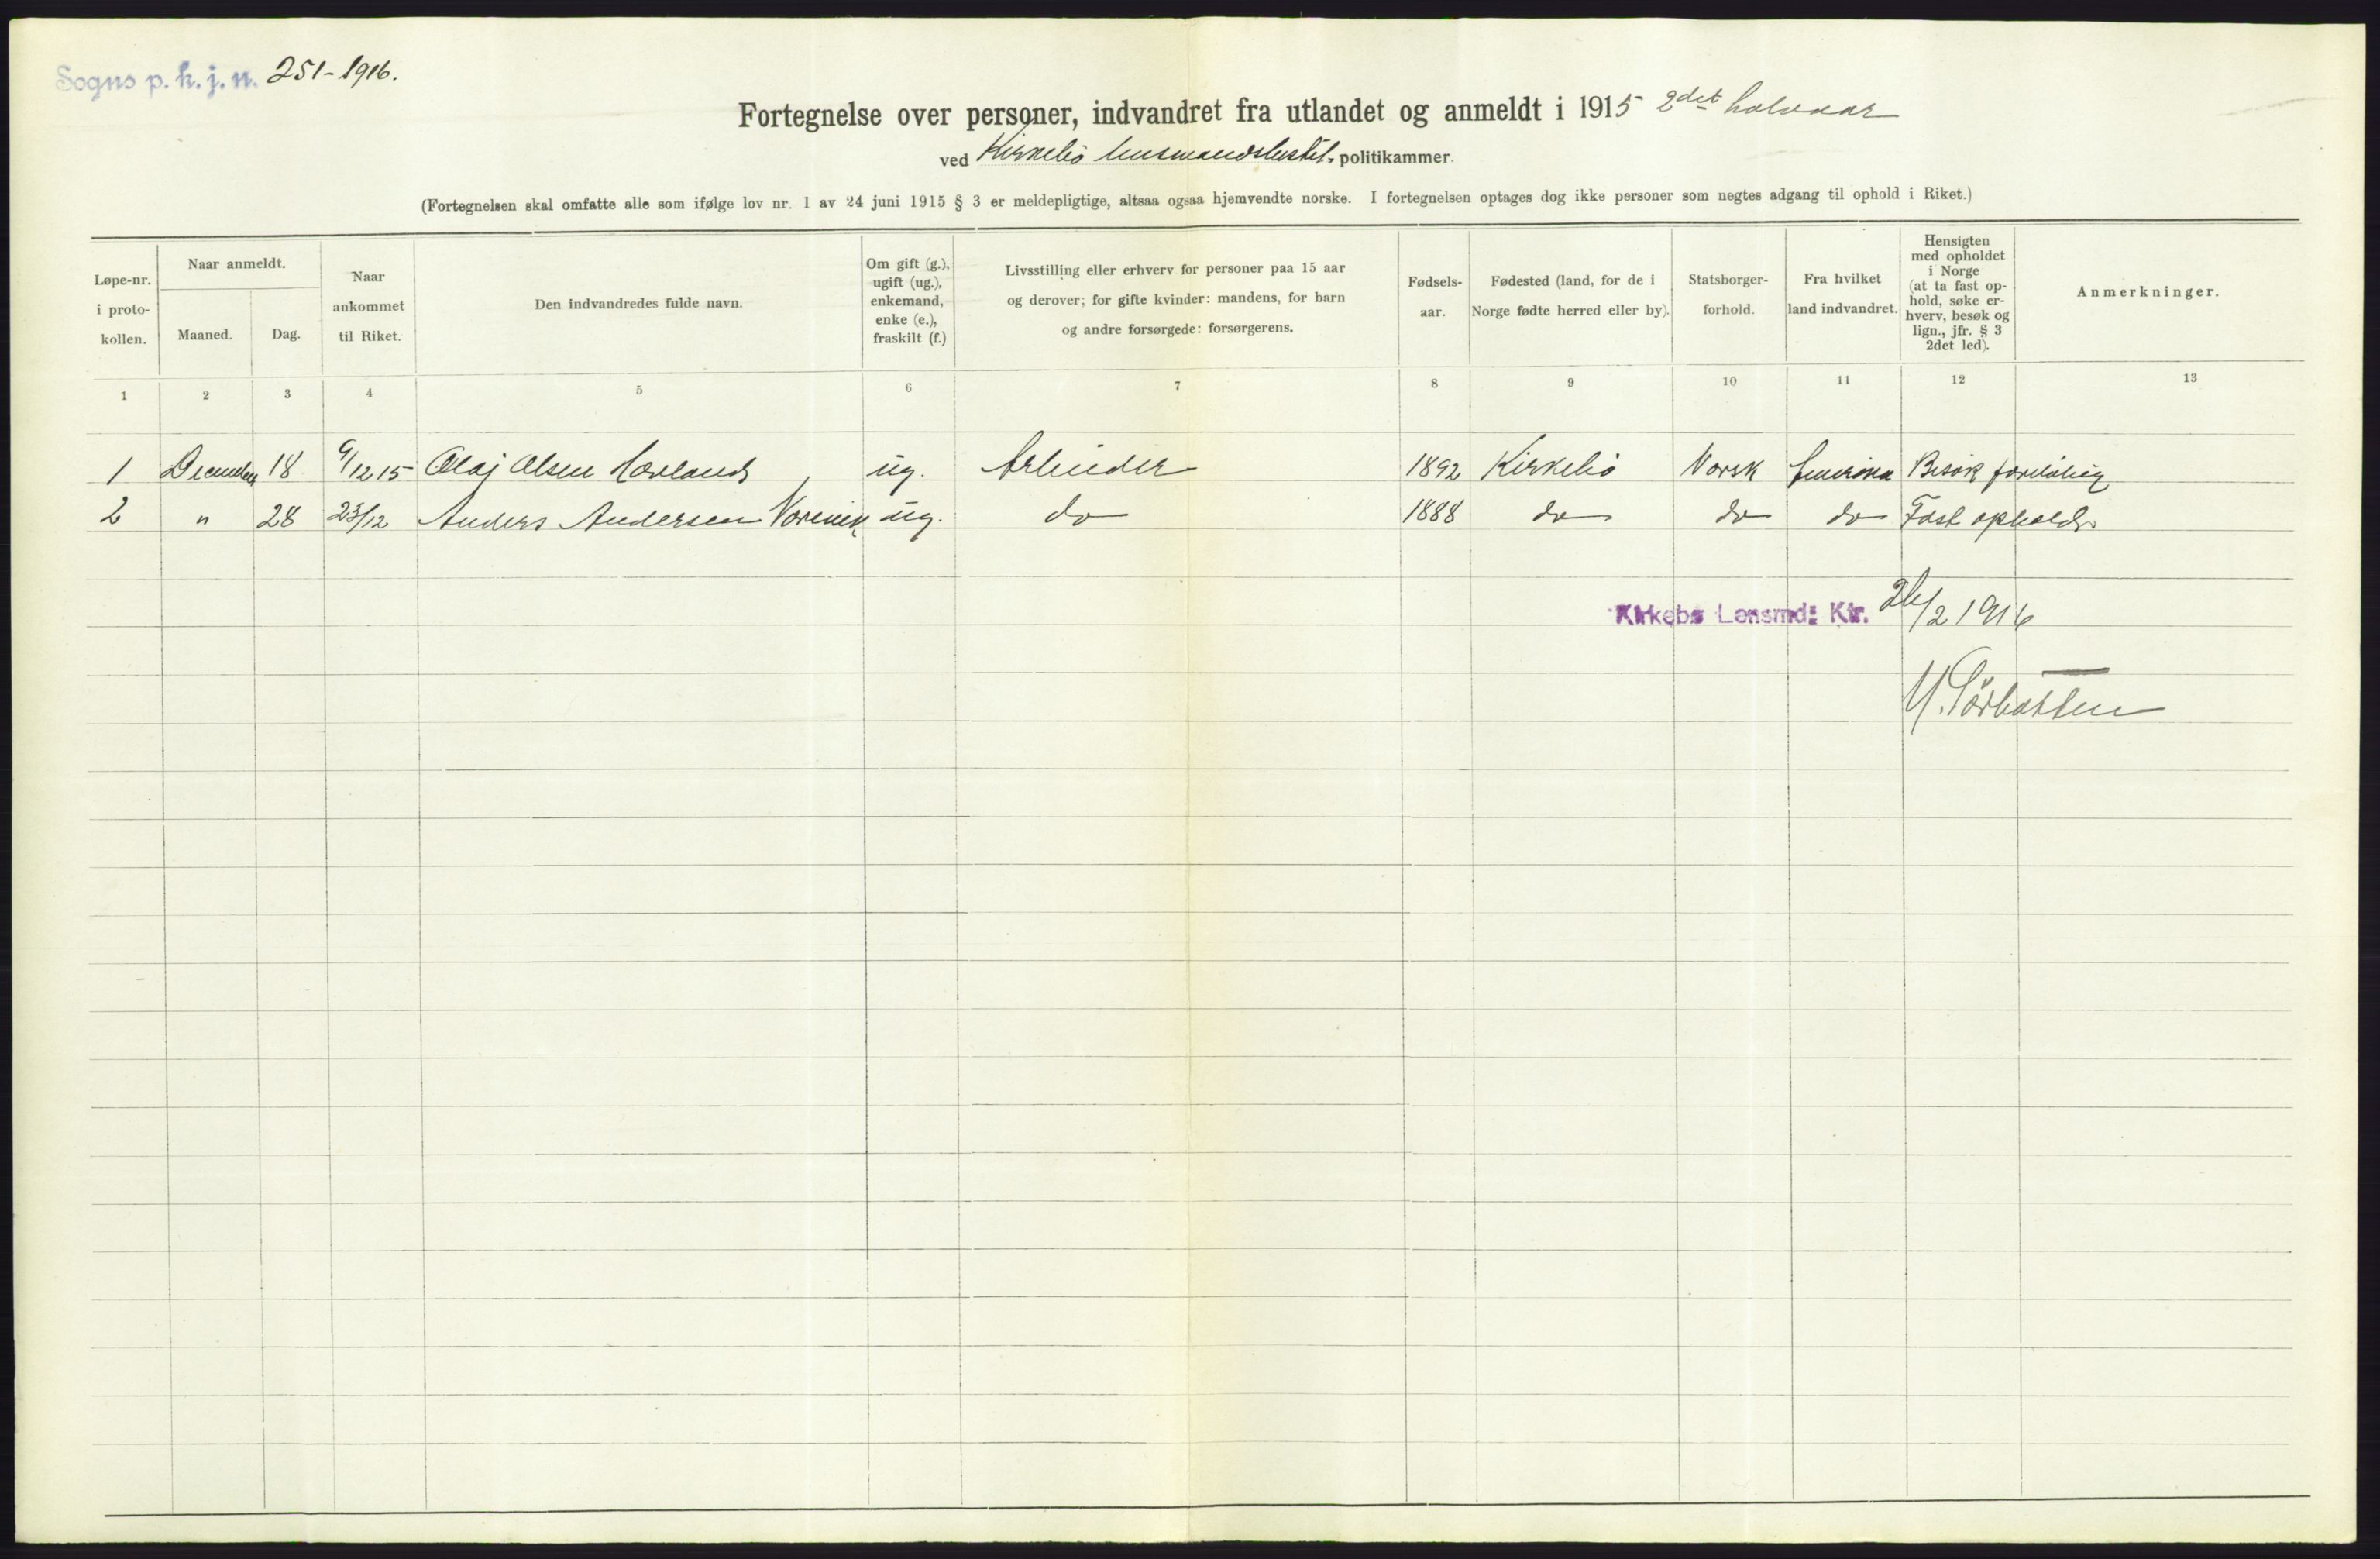 Sogns p. k. j. n. 251-1916.
Fortegnelse over personer, indvandret fra utlandet og anmeldt i 1915 2det halvaar
ved Kirkebø politikammer.
(Fortegnelsen skal omfatte alle som ifølge lov nr. 1 av 24 juni 1915 § 3 er meldepligtige, altsaa ogsaa hjemvendte norske. I fortegnelsen optages dog ikke personer som negtes adgang til ophold i Riket.)
Løpe-nr. i proto- kollen.
Naar anmeldt.
Maaned. Dag.
Naar ankommet til Riket.
Den indvandredes fulde navn.
Om gift (g.), ugift (ug.), enkemand, enke (e.), fraskilt (f.)
Livsstilling eller erhverv for personer paa 15 aar
og derover; for gifte kvinder: mandens, for barn
og andre forsørgede: forsørgerens.
Fødsels- aar.
Fødested (land, for de i Norge fødte herred eller by).
Statsborger- forhold.
Fra hvilket land indvandret.
Hensigten med opholdet i Norge (at ta fast op- hold, søke er- hverv, besøk og lign., jfr. § 3 2det led).
Anmerkninger.
1 2 3 4 5 6 7 8 9 10 11 12 13
1 December 18 9/12 15 Olaf Olsen Hovland ug. Arbeider 1892 Kirkebø Norsk Amerika Besøk foreløbig
2 " 28 23/12 Anders Andersen ug. do 1888 do do do Fast ophold.
Kirkebø Lensmd: Ktr. 26/2 1916